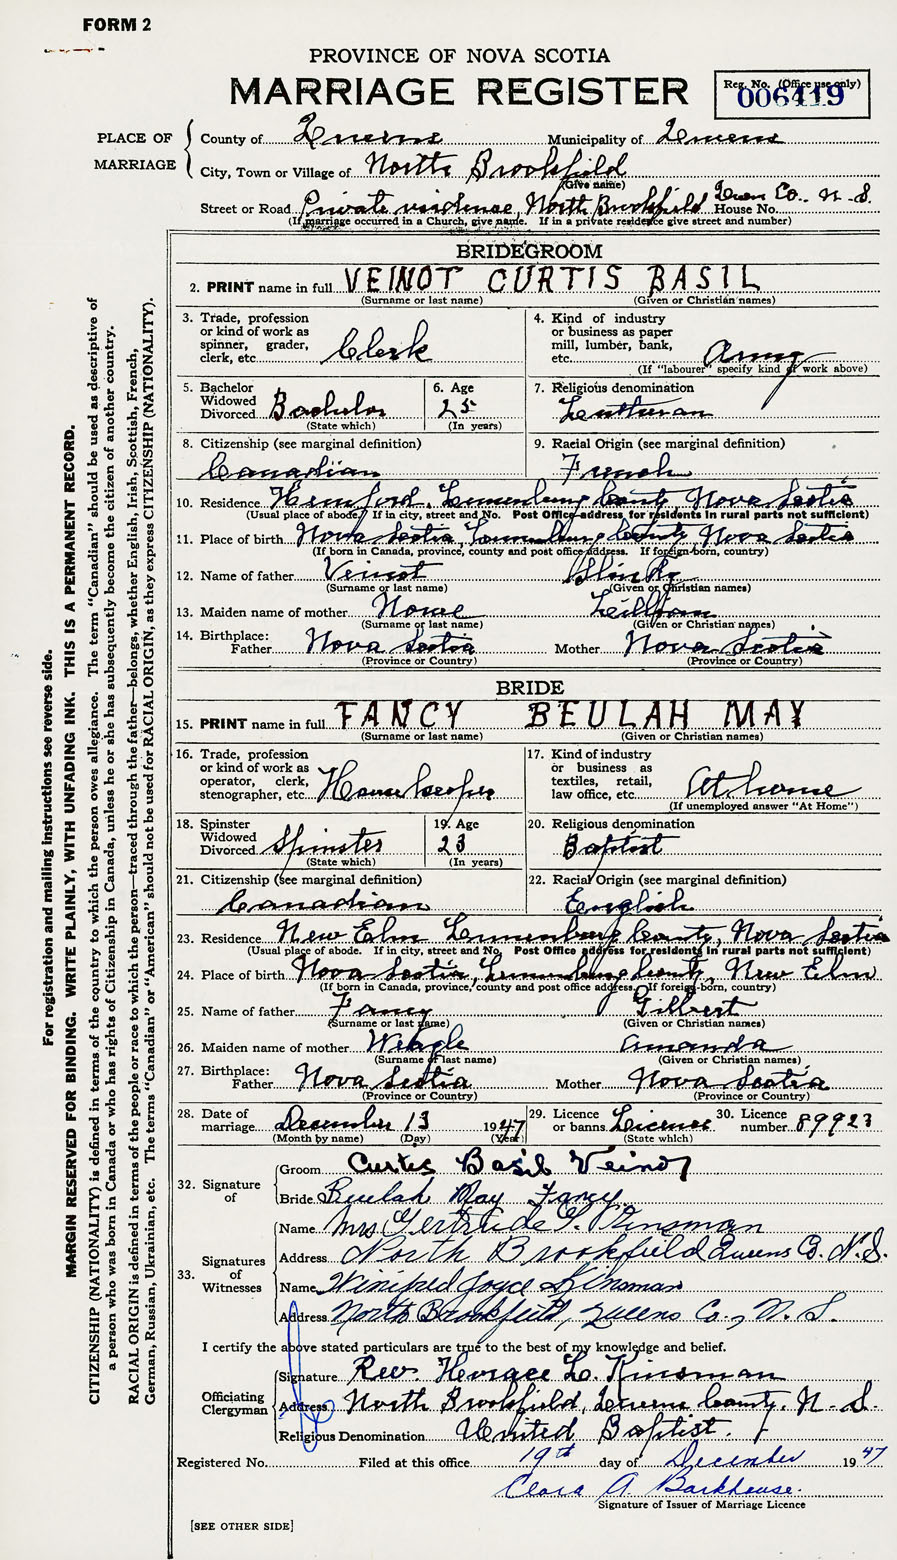 FORM 2
PROVINCE OF NOVA SCOTIA
MARRIAGE REGISTER
Reg. No. (Office use only)
006419
PLACE OF MARRIAGE
County of Queens Municipality of Queens
City, Town or Village of North Brookfield
(Give name)
Street or Road Private residence, North Brookfield House No. Queens Co. N.S.
(If marriage occurred in a Church, give name. If in a private residence give street and number)
BRIDEGROOM
2. PRINT name in full VEINOT CURTIS BASIL
(Surname or last name) (Given or Christian names)
3. Trade, profession or kind of work as spinner, grader, clerk, etc. Clerk
4. Kind of industry or business as paper mill, lumber, bank, etc. Army
(If "labourer" specify kind of work above)
5. Bachelor Widowed Divorced Bachelor
(State which)
6. Age 25
(In years)
7. Religious denomination Lutheran
8. Citizenship (see marginal definition)
Canadian
9. Racial Origin (see marginal definition)
French
10. Residence Hemford, Lunenburg County Nova Scotia
(Usual place of abode. If in city, street and No. Post Office address for residents in rural parts not sufficient)
11. Place of birth Nova Scotia Lunenburg County Nova Scotia
(If born in Canada, province, county and post office address. If foreign-born, country)
12. Name of father Veinot
(Surname or last name) (Given or Christian names)
13. Maiden name of mother Nowe Lillian
(Surname or last name) (Given or Christian names)
14. Birthplace: Father Nova Scotia Mother Nova Scotia
(Province or Country) (Province or Country)
BRIDE
15. PRINT name in full FANCY BEULAH MAY
(Surname or last name) (Given or Christian names)
16. Trade, profession or kind of work as operator, clerk, stenographer, etc. Housekeeper
17. Kind of industry or business as textiles, retail, law office, etc. At home
(If unemployed answer "At Home")
18. Spinster Widowed Divorced Spinster
(State which)
19. Age 23
(In years)
20. Religious denomination
Baptist
21. Citizenship (see marginal definition)
Canadian
22. Racial Origin (see marginal definition)
English
23. Residence New Elm Lunenburg County, Nova Scotia
(Usual place of abode. If in city, street and No. Post Office address for residents in rural parts not sufficient)
24. Place of birth Nova Scotia, Lunenburg County, New Elm
(If born in Canada, province, county and post office address. If foreign-born, country)
25. Name of father Fancy Gilbert
(Surname or last name) (Given or Christian names)
26. Maiden name of mother Weagle Amanda
(Surname or last name) (Given or Christian names)
27. Birthplace: Father Nova Scotia Mother Nova Scotia
(Province or Country) (Province or Country)
28. Date of marriage December 13 1947
(Month by name) (Day) (Year)
29. Licence or banns License
(State which)
30. Licence number 89923
32. Signature of
Groom Curtis Basil Veinot
Bride Beulah May Fancy
33. Signatures of Witnesses
Name Mrs Gertrude G. Kinsman
Address North Brookfield Queens Co. N.S.
Name Winifred Joyce Kinsman
Address North Brookfield, Queens Co., N.S.
I certify the above stated particulars are true to the best of my knowledge and belief.
Officiating Clergyman
Signature Rev. Horace L. Kinsman
Address North Brookfield, Queens County, N.S.
Religious Denomination United Baptist.
Registered No. Filed at this office 19th day of December 1947
Clara A. Barkhouse.
Signature of Issuer of Marriage Licence
[SEE OTHER SIDE]
For registration and mailing instructions see reverse side.
MARGIN RESERVED FOR BINDING. WRITE PLAINLY, WITH UNFADING INK. THIS IS A PERMANENT RECORD.
CITIZENSHIP (NATIONALITY) is defined in terms of the country to which the person owes allegiance. The term "Canadian" should be used as descriptive of
a person who was born in Canada or who has rights of Citizenship in Canada, unless he or she has subsequently become the citizen of another country.
RACIAL ORIGIN is defined in terms of the people or race to which the person—traced through the father—belongs, whether English, Irish, Scottish, French,
German, Russian, Ukrainian, etc. The terms "Canadian" or "American" should not be used for RACIAL ORIGIN, as they express CITIZENSHIP (NATIONALITY).